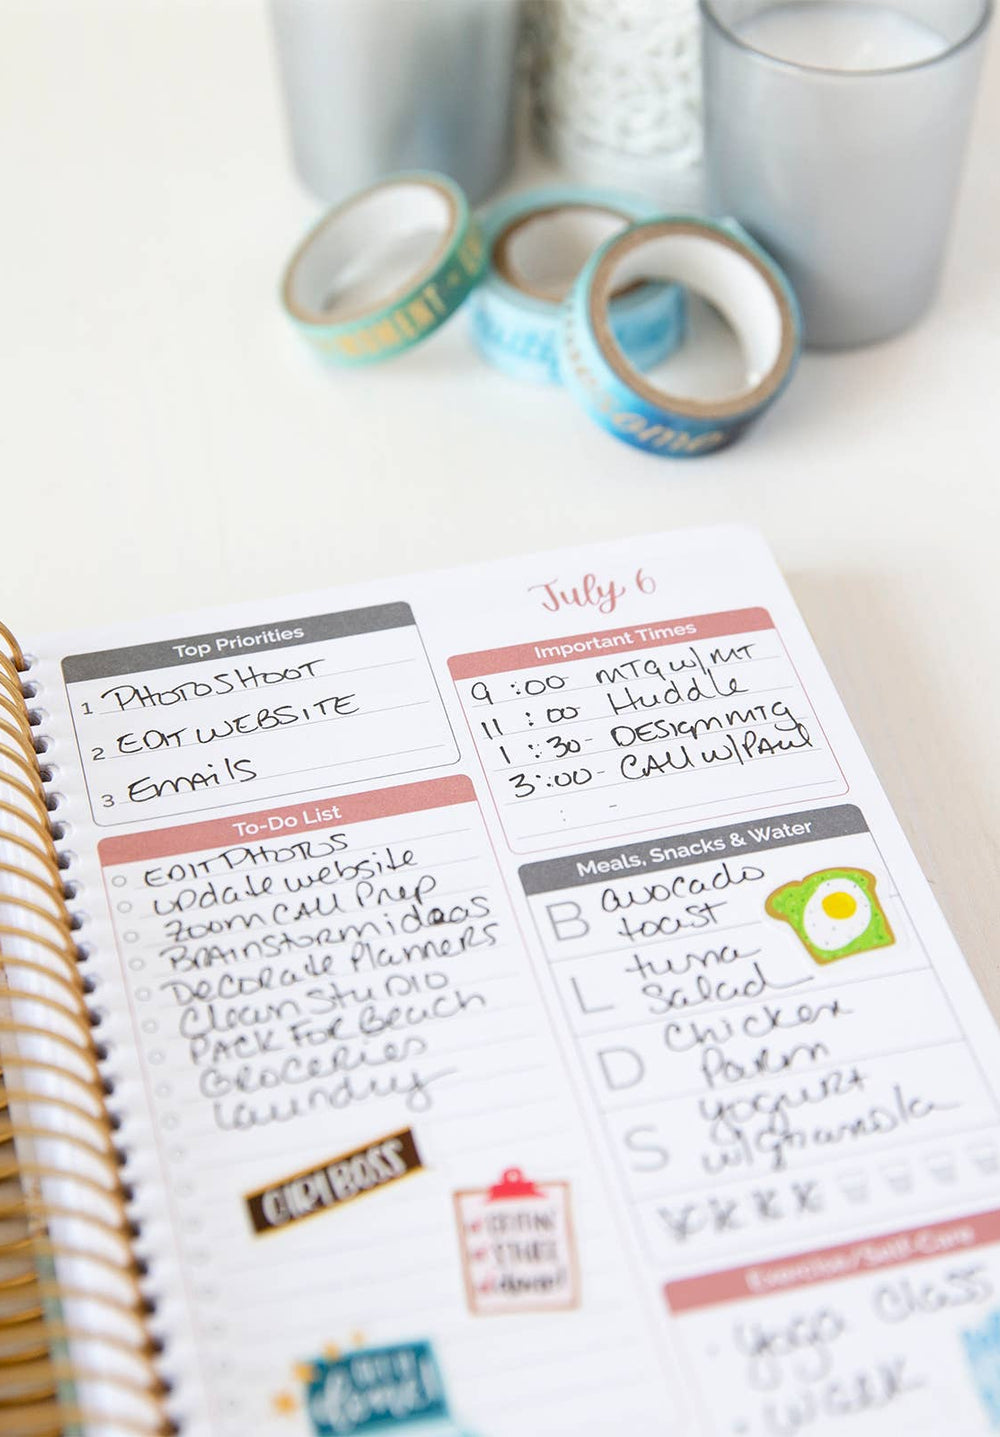 MOMENT
awesome
July 6
Top Priorities
1 PHOTOSHOOT
2 EDIT WEBSITE
3 EMAILS
To-Do List
EDIT PHOTOS
update website
ZOOM CALL Prep
BRAINSTORM ideas
DECORATE PLANNERS
Clean STUDIO
PACK FOR Beach
GROCERIES
Laundry
GIRL BOSS
GETTIN'
STUFF
done!
done!
Important Times
9:00 MTG w/ MT
11:00 Huddle
1:30- DESIGN MTG
3:00- CALL w/ PAUL
: -
Meals, Snacks & Water
B avocado
toast
L tuna
Salad
D Chicken
Parm
S yogurt
w/ granola
Exercise/Self-Care
yoga Class